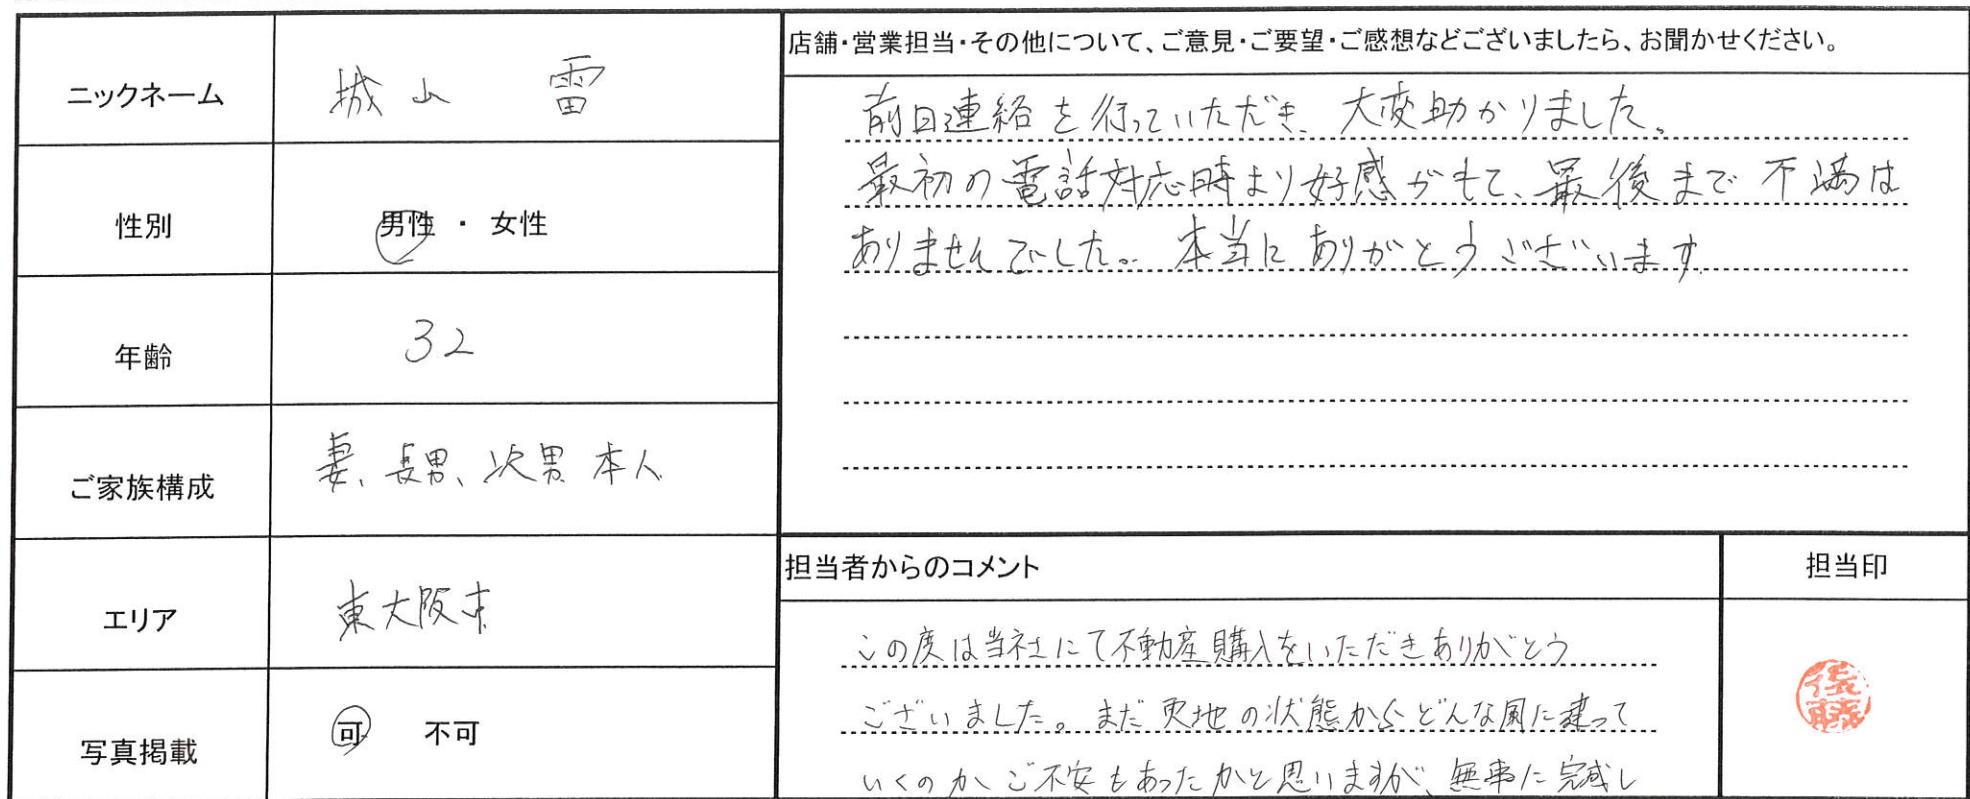 ニックネーム 城山 雷
性別 男性 ・ 女性
年齢 32
ご家族構成 妻、長男、次男 本人
エリア 東大阪市
写真掲載 可 不可
店舗・営業担当・その他について、ご意見・ご要望・ご感想などございましたら、お聞かせください。
前日連絡を行っていただき、大変助かりました。
最初の電話対応時より好感がもて、最後まで不満は
ありませんでした。本当にありがとうございます
担当者からのコメント 担当印
この度は当社にて不動産購入をいただきありがとう
ございました。まだ更地の状態からどんな風に建って
いくのかご不安もあったかと思いますが、無事に完成し
後藤